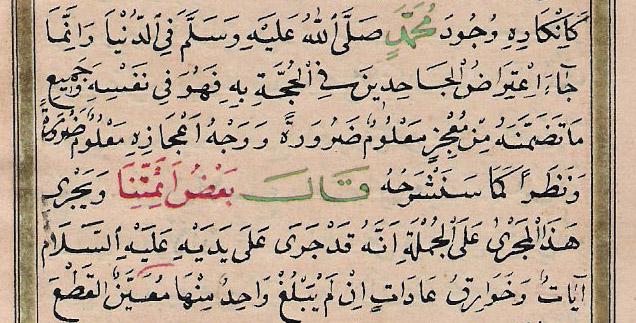 كَاِنْكَارِهِ وُجُودَ مُحَمَّدٍ صَلَّى اللهُ عَلَيْهِ وَسَلَّمَ فِى الدُّنْيَا وَاِنَّمَا
جَآءَ اِعْتِرَاضُ الْجَاحِدِينَ فِي الْحُجَّةِ بِهِ فَهُوَ فِى نَفْسِهِ وَجَمِيعِ
مَا تَضَمَّنَهُ مِنْ مُعْجِزٍ مَعْلُومٌ ضَرُورَةً وَوَجْهُ اِعْجَازِهِ مَعْلُومٌ ضَرُورَةً
وَنَظَرًا كَمَا سَنَشْرَحُهُ قَالَ بَعْضُ اَئِمَّتِنَا وَيَجْرِى
هَذَا الْمَجْرَى عَلَى الْجُمْلَةِ اَنَّهُ قَدْ جَرَى عَلَى يَدَيْهِ عَلَيْهِ السَّلَامُ
آيَاتٌ وَخَوَارِقُ عَادَاتٍ اِنْ لَمْ يَبْلُغْ وَاحِدٌ مِنْهَا مُعَيَّنٌ الْقَطْعَ